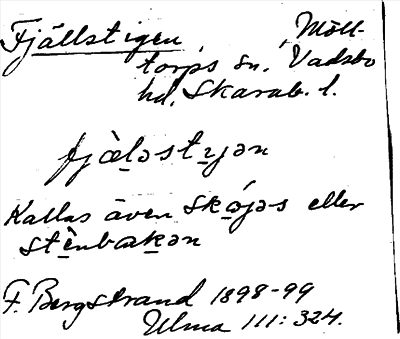 Fjällstigen, Möll-
torps sn, Vadsbo
hd, Skarab. l.
fjæ̀l̯əstɪ̯jən
Kallas även skó̯jəs eller
stè̯nbak̯ən
F. Bergstrand 1898-99
Ulma 111: 324.